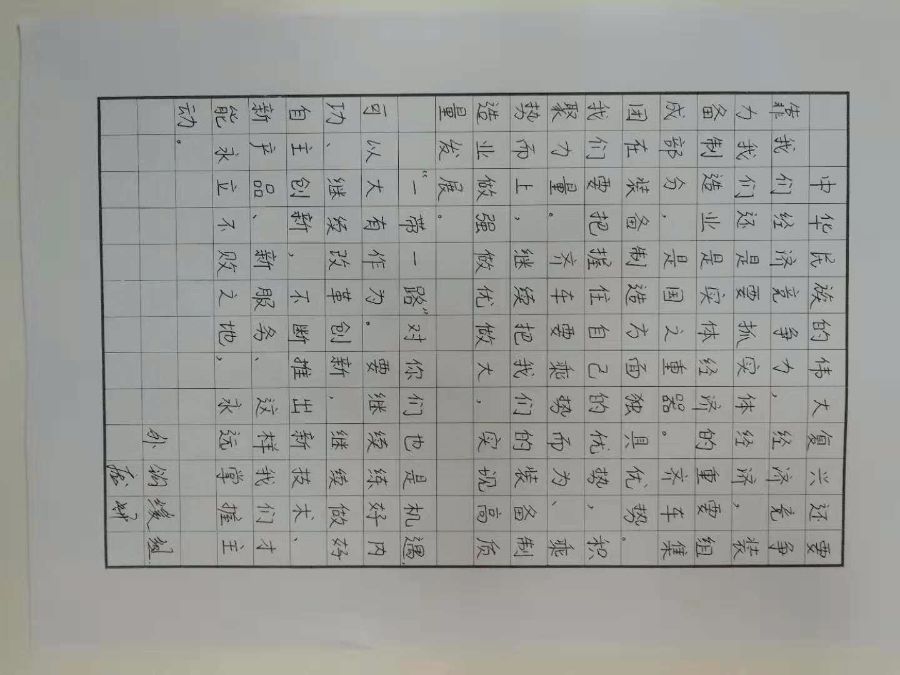 中华民族的伟大复兴还要
靠我们经济竞争力，经济竞争
力我们还是要抓实体经济，装
备制造业是实体经济的重要组
成部分，是国之重器。齐车集
团在装备制造方面独具优势。
我们要把握住自己的优势，积
聚力量。齐车要乘势而为、乘
势而上，继续把我们的装备制
造业做强做优做大，实现高质
量发展。
“一带一路”对你们也是机遇，
可以大有作为。要继续练好内
功、继续改革创新，继续做好
自主创新，不断推出新技术、
新产品、新服务、这样我们才
能永立不败之地，永远掌握主
动。
外钩缓组